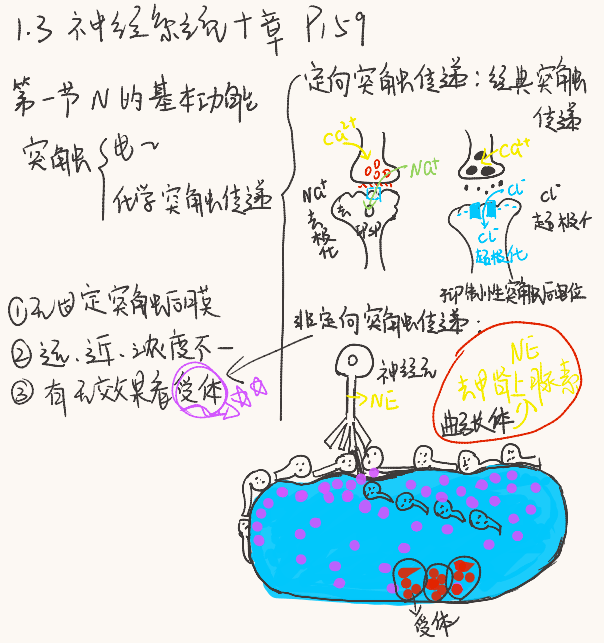 1.3 神经系统十章 P159
第一节 N的基本功能
突触
电~
化学突触传递
定向突触传递：经典突触
传递
Ca²⁺
Na⁺
Na⁺
去
去极化
EPSP
Ca²⁺
Cl⁻
Cl⁻
超极化
Cl⁻
超极个
抑制性突触后电位
①无固定突触后膜
②远、近、浓度不一
③有无效果看受体
非定向突触传递：
神经元
NE
NE
去甲肾上腺素
曲张体
受体